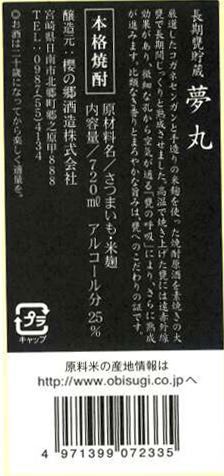 長期甕貯蔵
夢丸
厳選したコガネセンガンと手造りの米麹を使った焼酎原酒を素焼きの大
甕で長期間じっくりと熟成させました。高温で焼き上げた甕には遠赤外線
効果があり、微細な孔から空気が通る「甕の呼吸」により、さらに熟成
が進みます。比類なき香りとまろやかな旨みは、甕へのこだわりの証です。
本格焼酎
原材料名/さつまいも・米麹
内容量/720ml アルコール分 25%
醸造元・櫻の郷酒造株式会社
宮崎県日南市北郷町郷之原甲888
TEL:0987(55)4134
◎お酒は二十歳になってから楽しく適量を。
プラ
キャップ
原料米の産地情報は
http://www.obisugi.co.jpへ
4 971399 072335